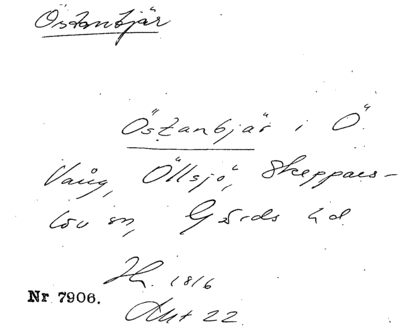 Östanbjär
Östanbjär i Ö
Vång, Öllsjö, Skeppars-
löv sn, Gärds hd
1816
Nr 7906.
Akt 22